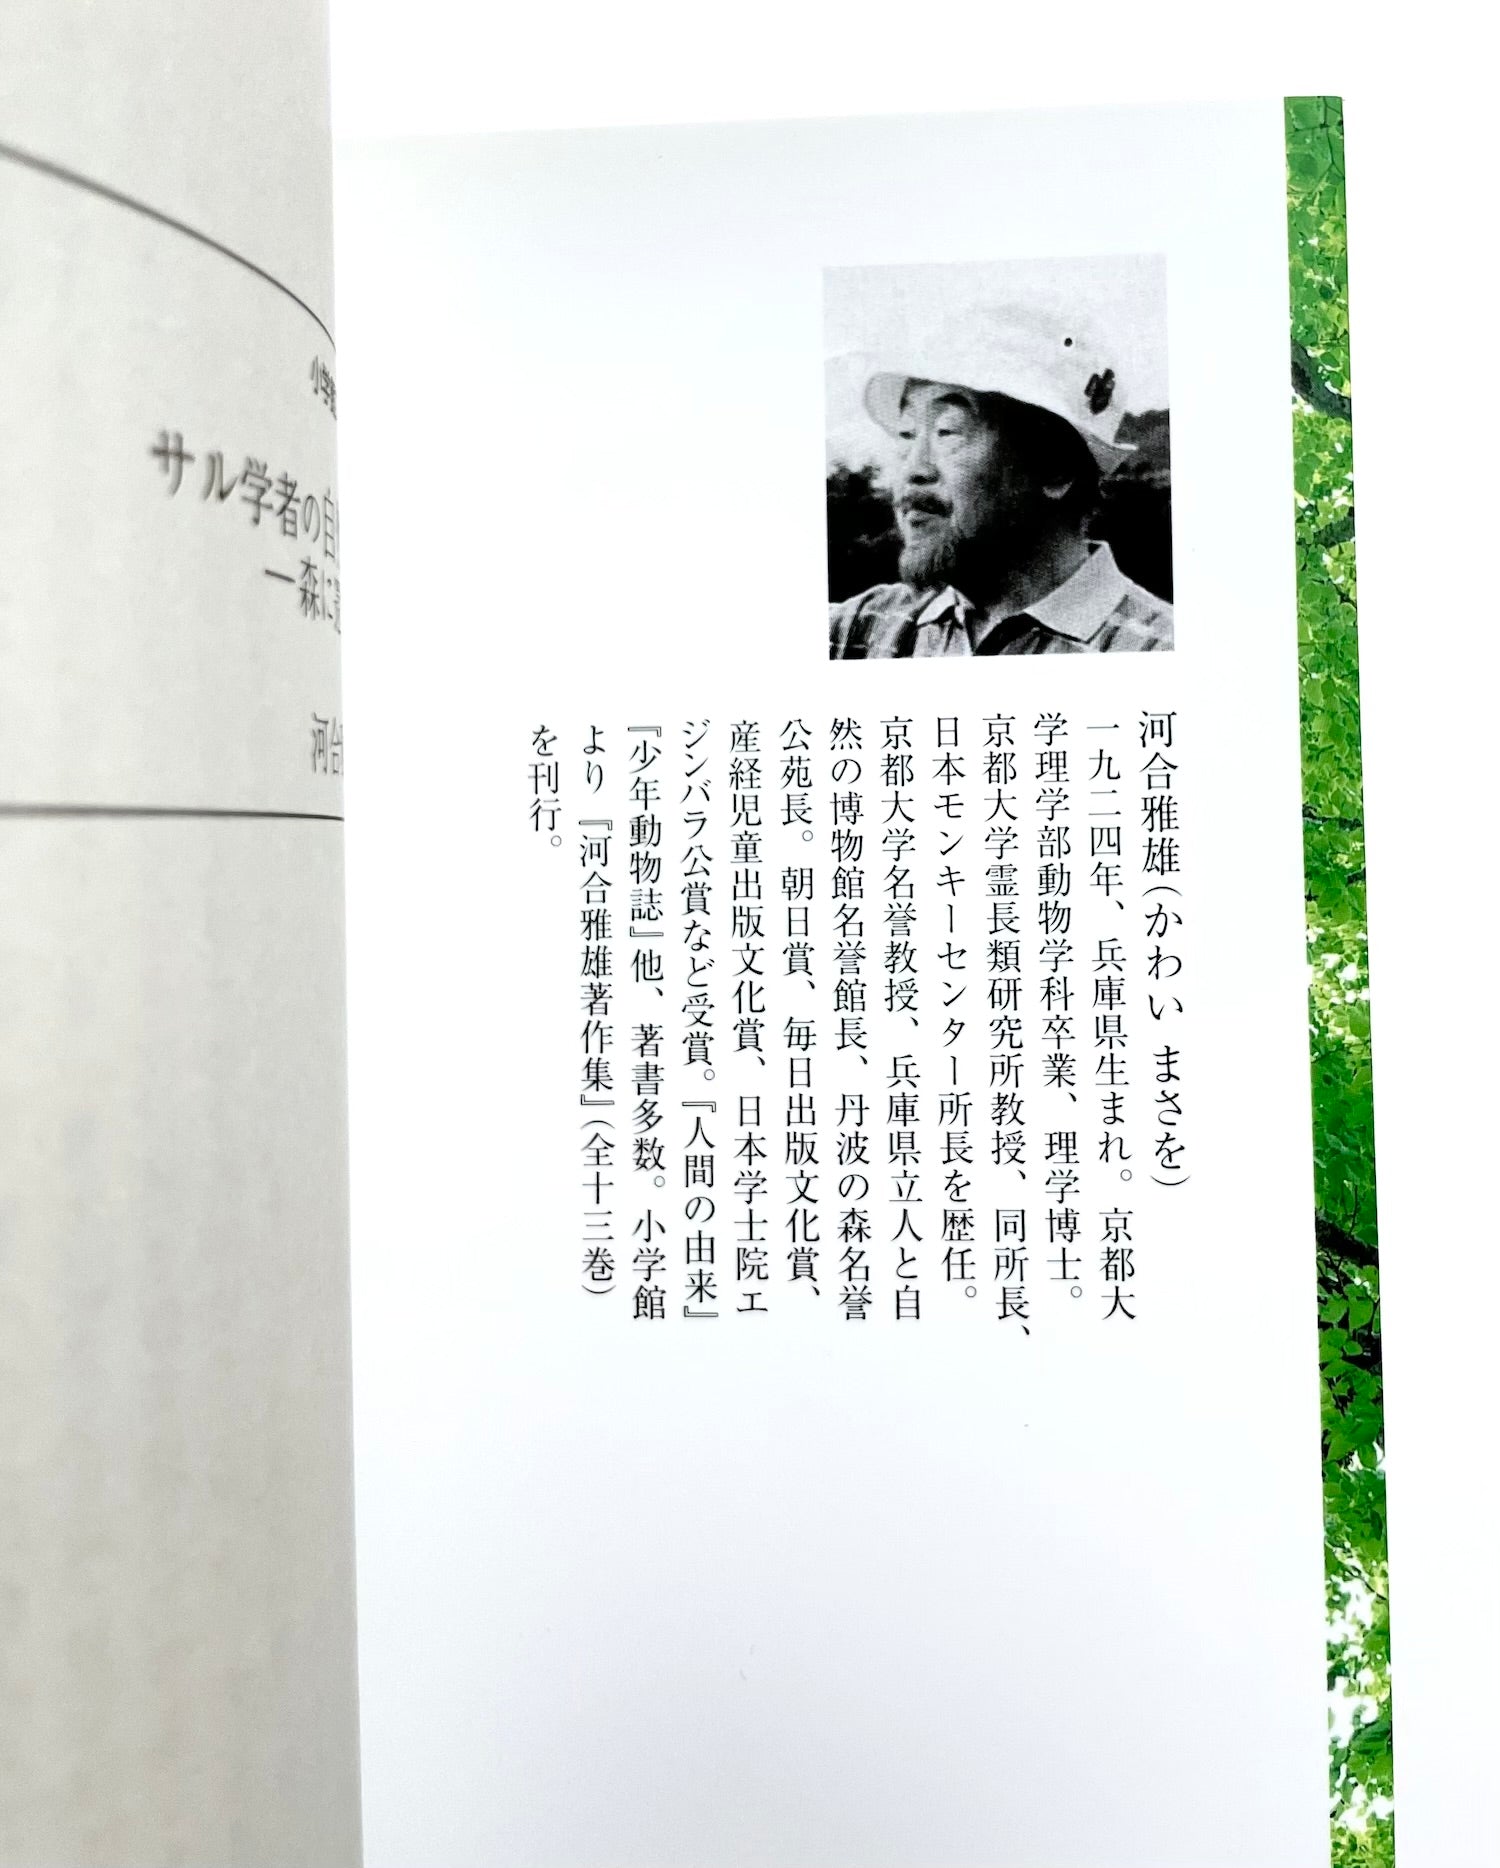 河合雅雄(かわい まさを)
一九二四年、兵庫県生まれ。京都大
学理学部動物学科卒業、理学博士。
京都大学霊長類研究所教授、同所長、
日本モンキーセンター所長を歴任。
京都大学名誉教授、兵庫県立人と自
然の博物館名誉館長、丹波の森名誉
公苑長。朝日賞、毎日出版文化賞、
産経児童出版文化賞、日本学士院エ
ジンバラ公賞など受賞。『人間の由来』
『少年動物誌』他、著書多数。小学館
より『河合雅雄著作集』(全十三巻)
を刊行。
小学館
サル学者の自
―森に
河合